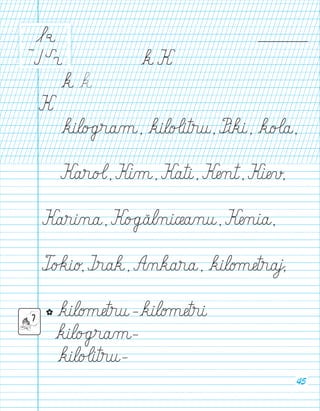 k K
k k
K
kilogram, kilolitru, Piki, kola,
Karol, Kim, Kati, Kent, Kiev,
Karina, Kogălniceanu, Kenia,
Tokio, Irak, Ankara, kilometraj,
kilometru - kilometri
kilogram -
kilolitru -
45